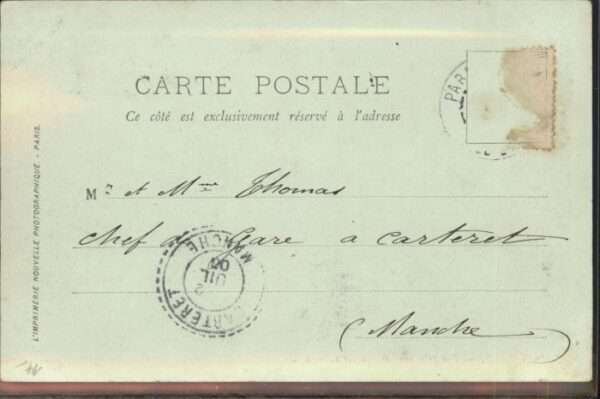 CARTE POSTALE
Ce côté est exclusivement réservé à l'adresse
PAR
Mr et Mme Thomas
Chef de Gare a Carteret
(Manche)
CARTERET
MANCHE
2
JUIL
L'IMPRIMERIE NOUVELLE PHOTOGRAPHIQUE - PARIS.